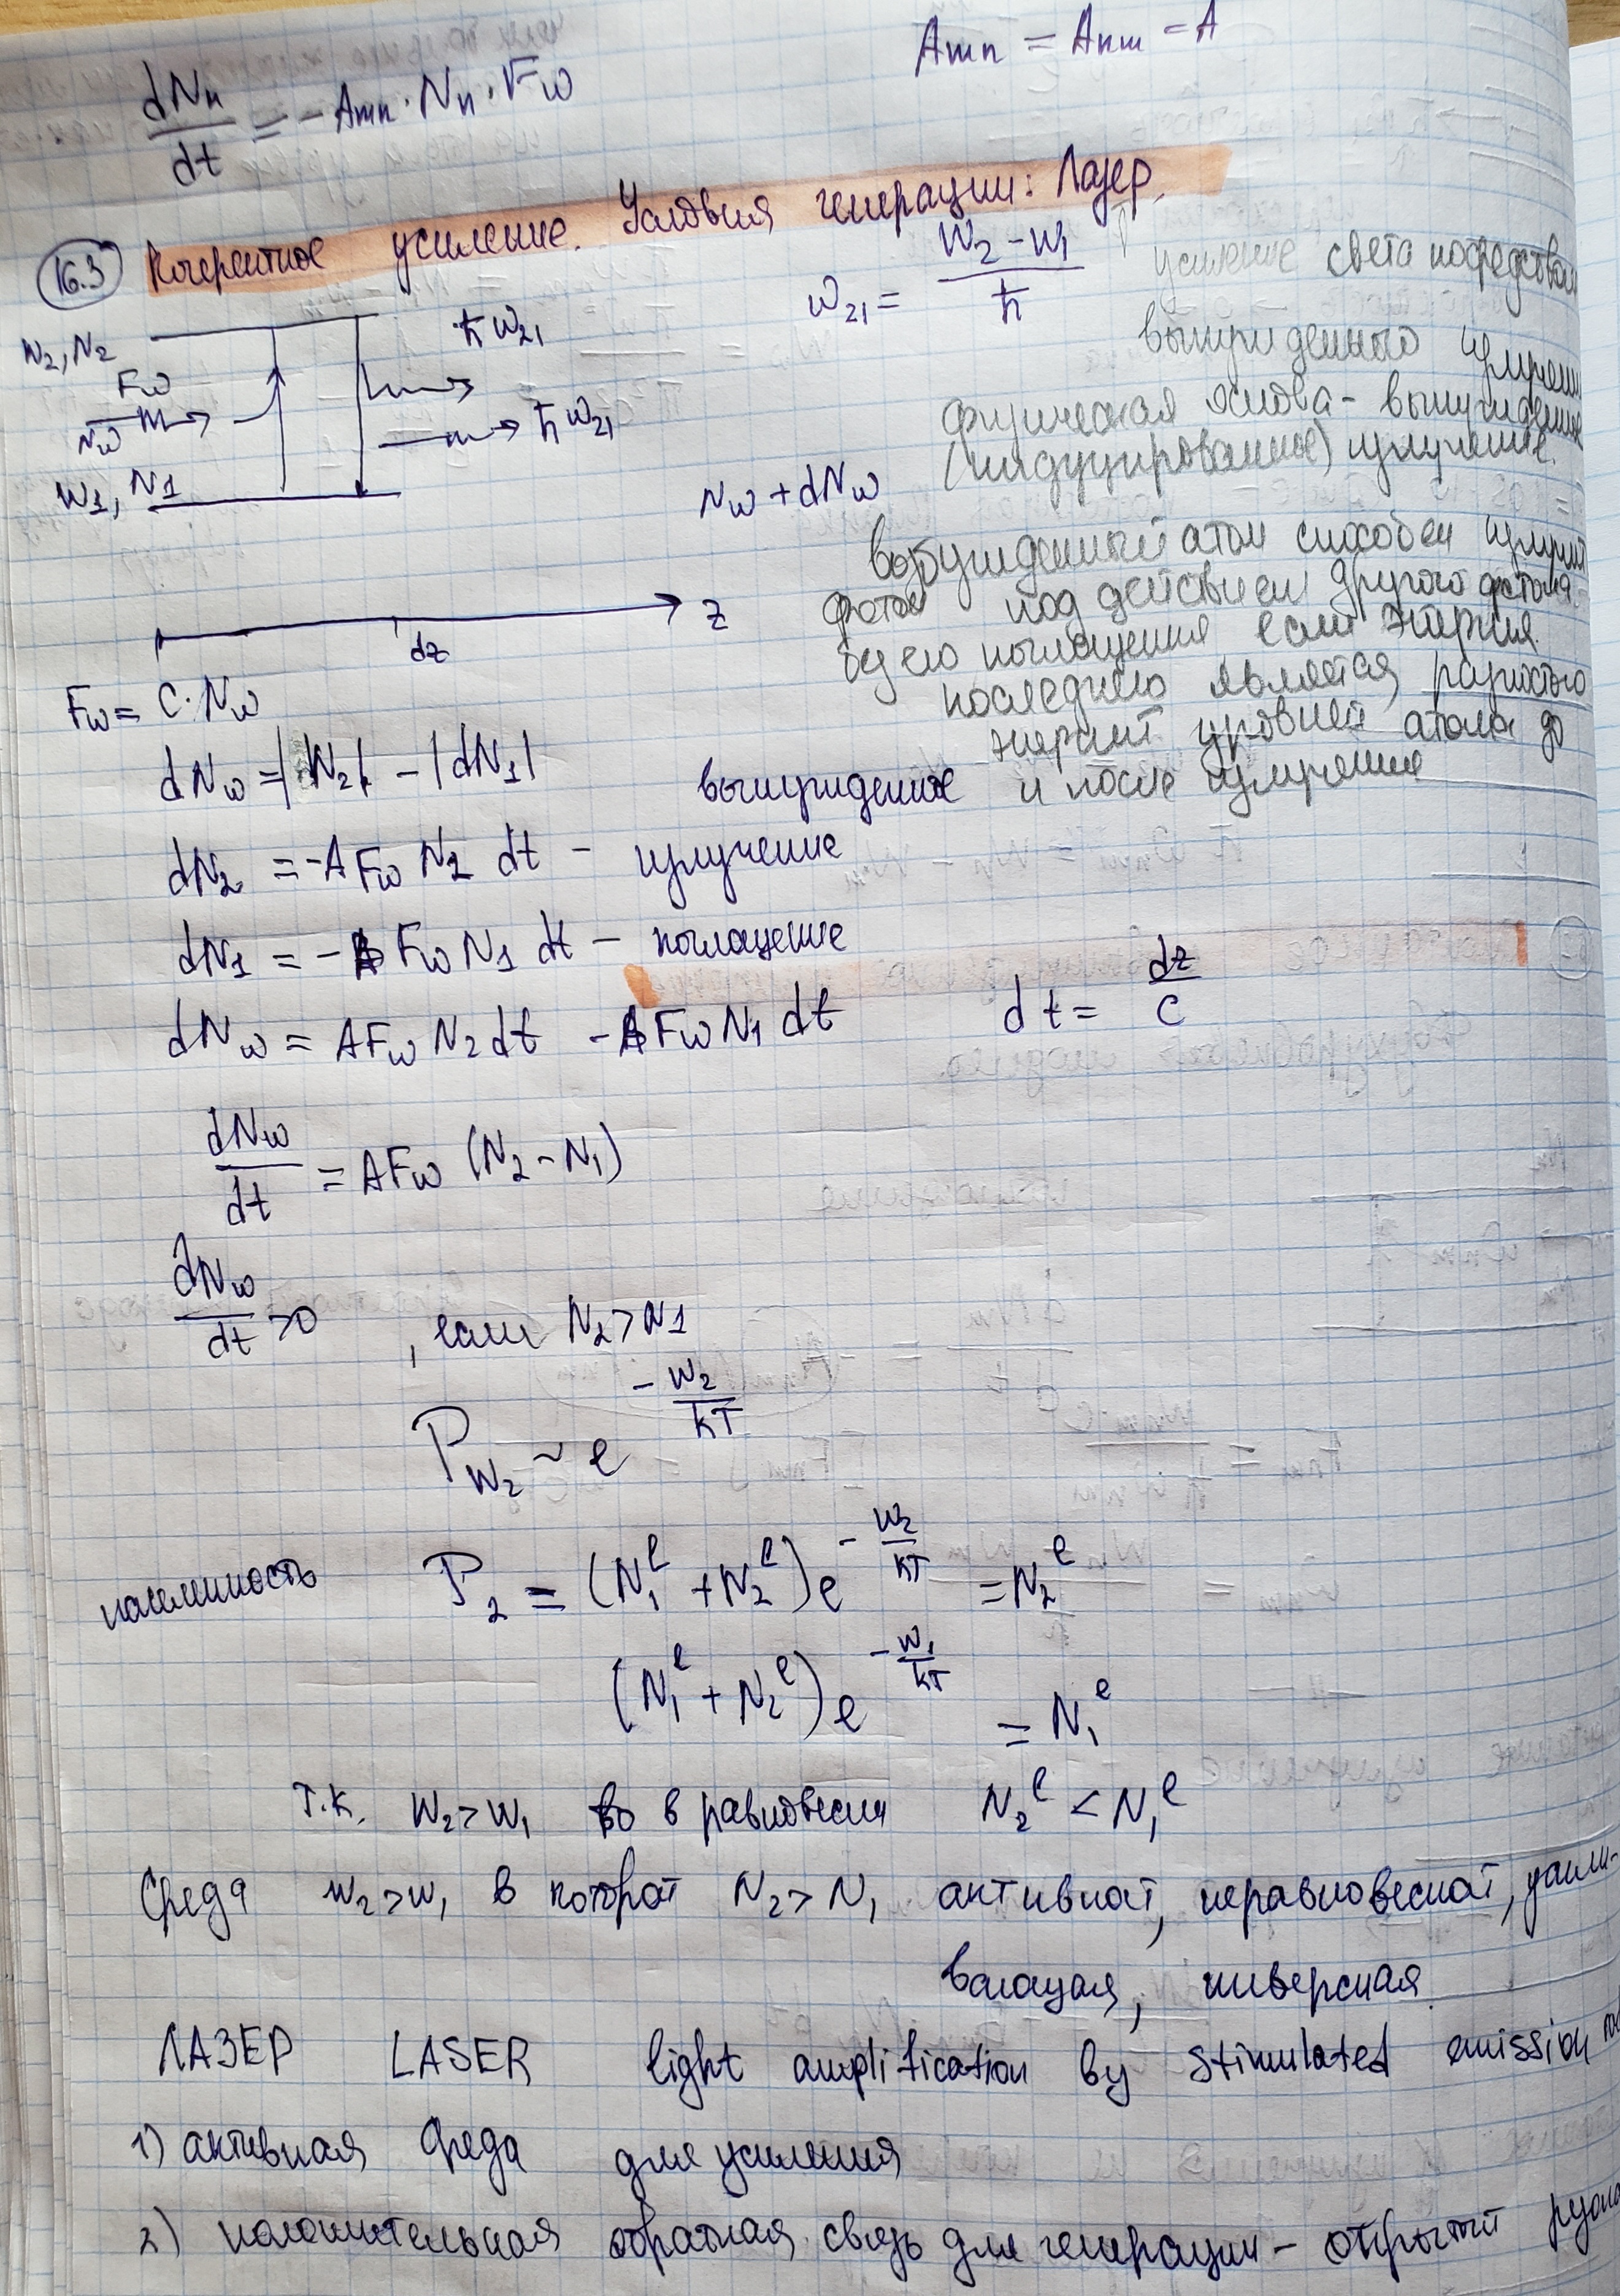 dNn/dt = -Amn · Nn · Fω
Amn = Anm = A
16.3 Когерентное усиление. Условия генерации: Лазер.
ω21 = (W2 - W1)/ħ
усиление света посредством
вынужденного излучения
физическая основа - вынужденное
(индуцированное) излучение.
возбужденный атом способен излучить
фотон под действием другого фотона
без его поглощения если энергия
последнего является разностью
энергий уровней атома до
и после излучения
W2, N2
ħω21
Fω
Nω
ħω21
W1, N1
Nω + dNω
z
dz
Fω = C·Nω
dNω = |N2| - |dN1|
dN2 = -A Fω N2 dt - вынужденное излучение
dN1 = -A Fω N1 dt - поглощение
dNω = AFω N2 dt - AFω N1 dt
dt = dz/C
dNω/dt = AFω (N2 - N1)
dNω/dt > 0, если N2 > N1
P_W2 ~ e^(-W2/kT)
населенность P2 = (N1^e + N2^e) e^(-W2/kT) = N2^e
(N1^e + N2^e) e^(-W1/kT) = N1^e
т.к. W2 > W1 то в равновесии N2^e < N1^e
Среда W2 > W1 в которой N2 > N1 активной, неравновесной, усили-
вающая, инверсная.
ЛАЗЕР LASER light amplification by stimulated emission
1) активная среда для усиления
2) положительная обратная связь для генерации - открытый